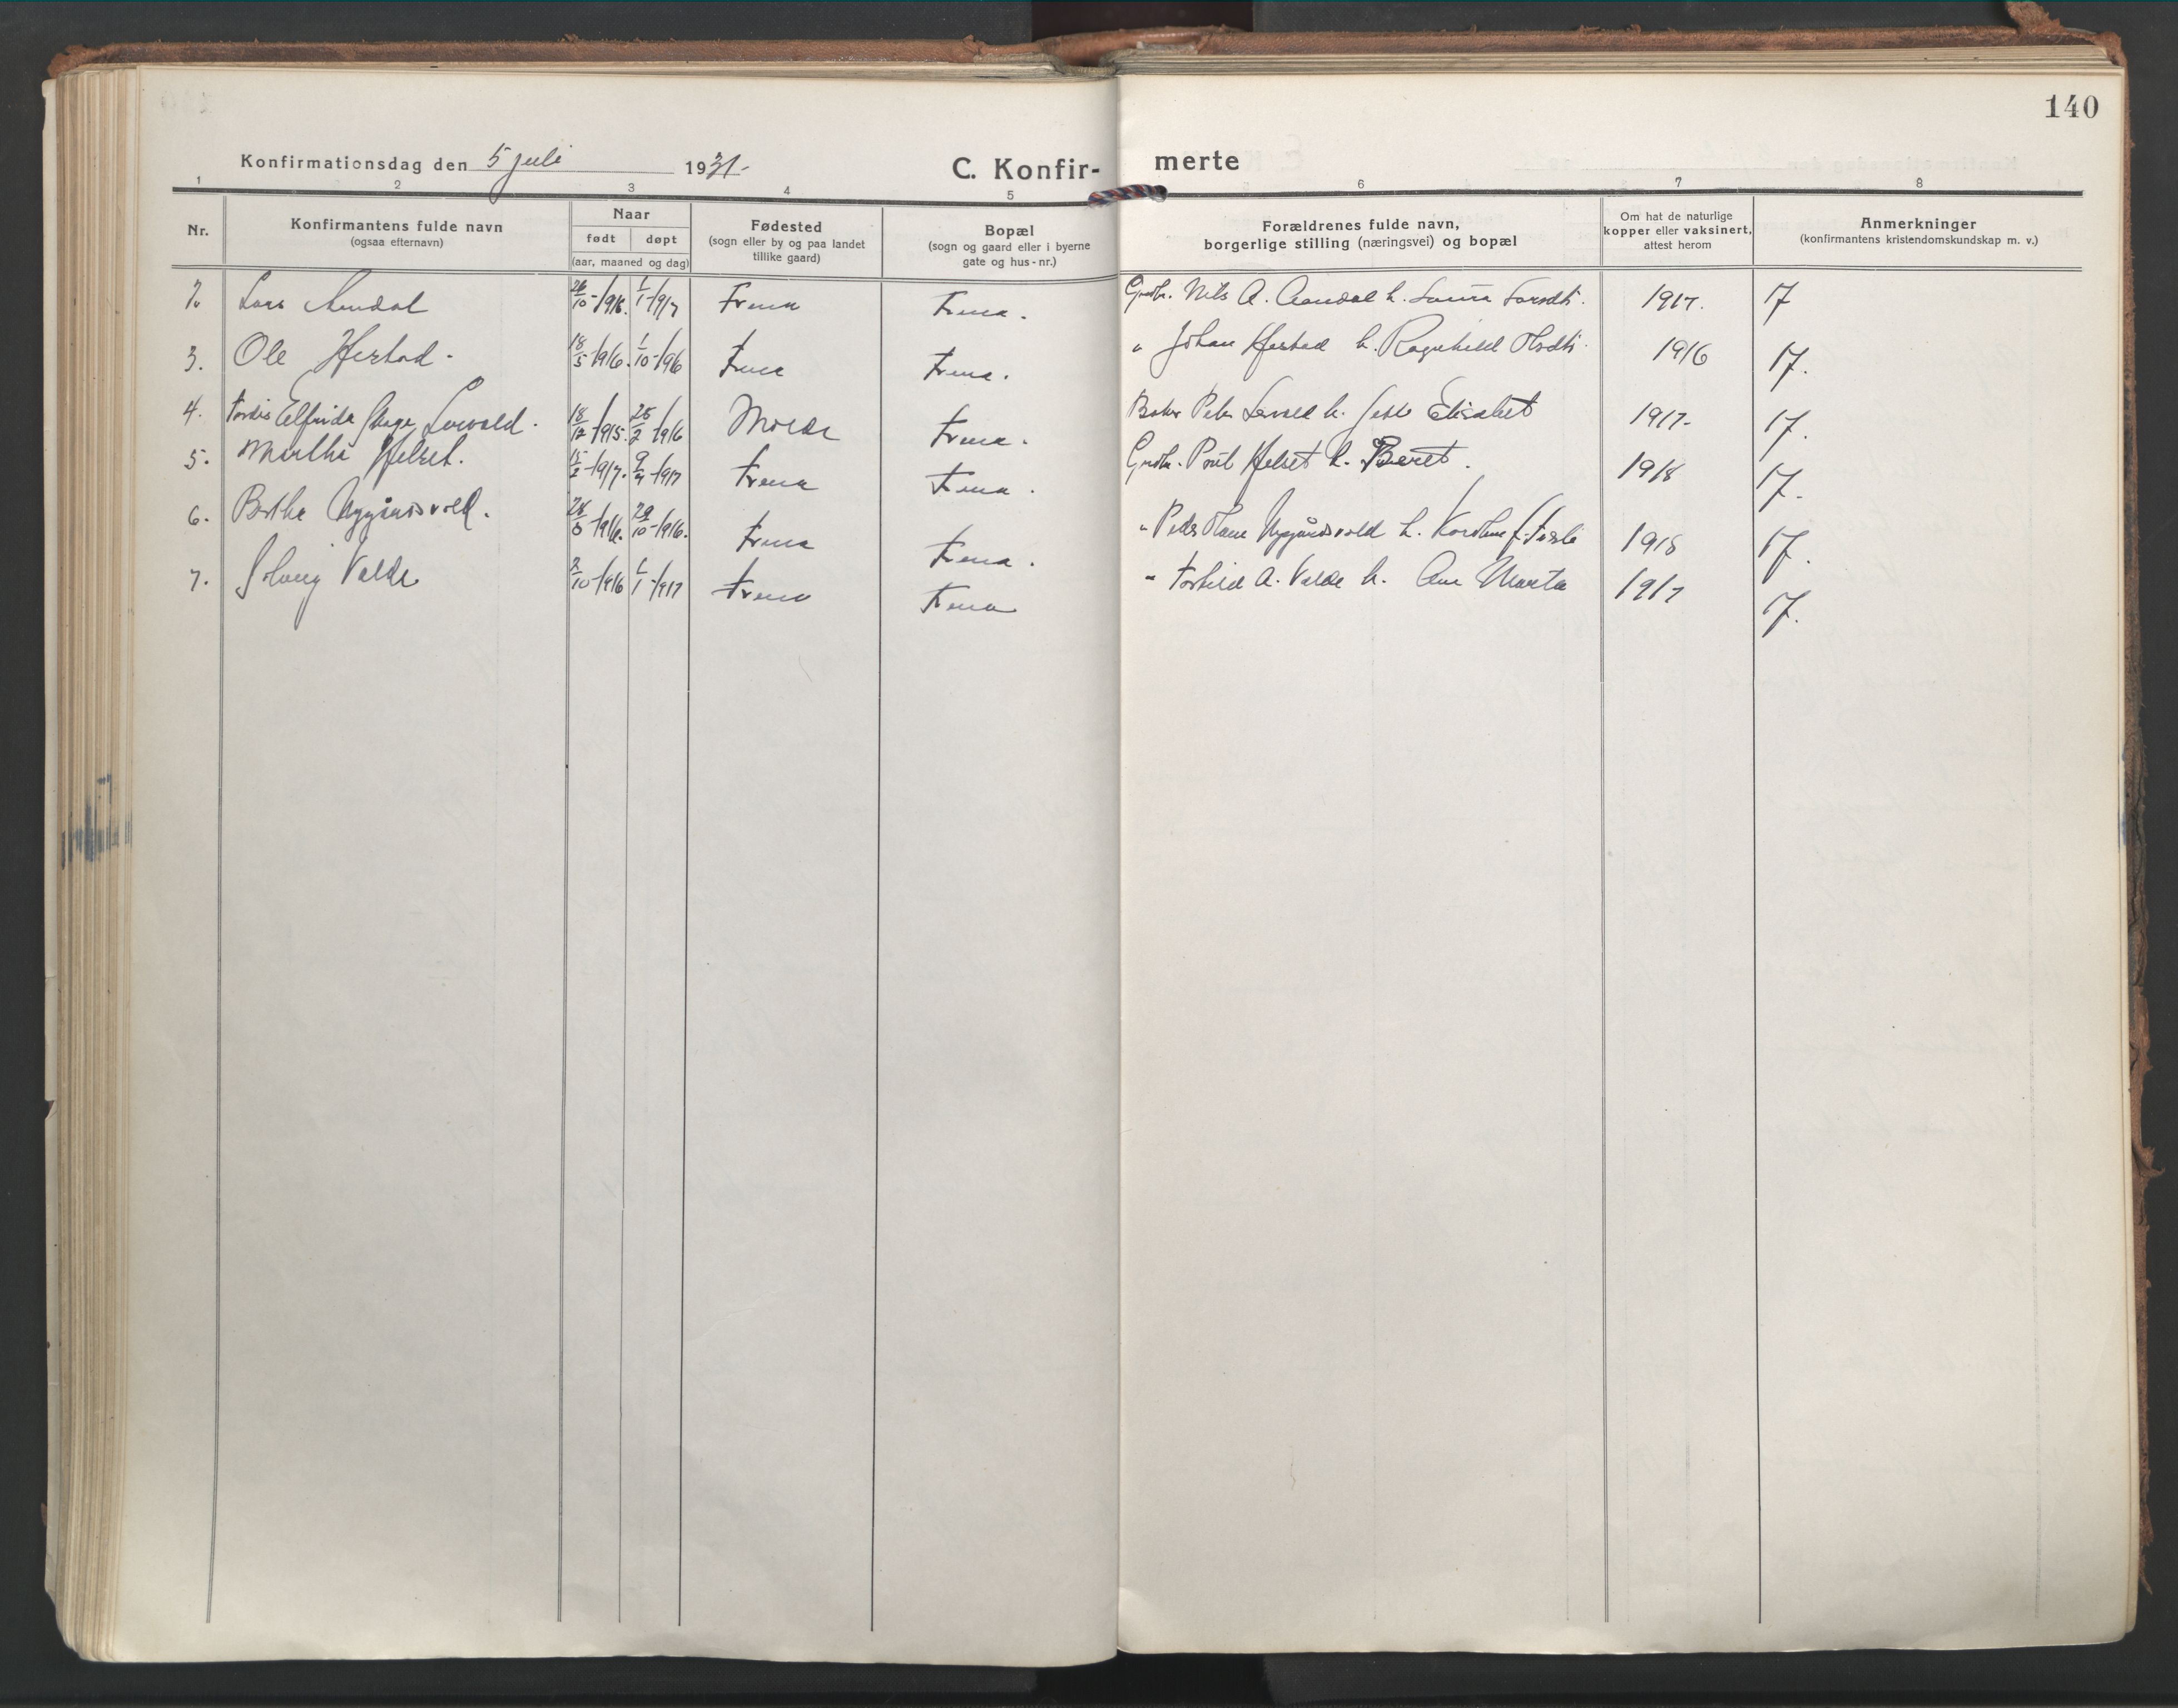 140
Konfirmationsdag den 5 juli 1931.
C. Konfir- merte
1 2 3 4 5 6 7 8
Nr.
Konfirmantens fulde navn
(ogsaa efternavn)
Naar
født døpt
(aar, maaned og dag)
Fødested
(sogn eller by og paa landet
tillike gaard)
Bopæl
(sogn og gaard eller i byerne
gate og hus-nr.)
Forældrenes fulde navn,
borgerlige stilling (næringsvei) og bopæl
Om hat de naturlige
kopper eller vaksinert,
attest herom
Anmerkninger
(konfirmantens kristendomskundskap m. v.)
2. Lars Aandal 26/10-1916. 1/1-1917 Fræna Fræna. Grdbr. Nils A. Aandal h. Laura Larsdtr. 1917. 17
3. Ole Herstad. 18/5-1916. 1/10-1916 Fræna Fræna. " Johan Herstad h. Ragnhild Olsdtr. 1916 17.
4. Tordis Elfrida Levold. 18/12-1915. 25/2-1916 Molde Fræna. Baker Peter Levold h. Elisabet 1917. 17.
5. Marthe Helset. 15/2-1917. 9/4-1917 Fræna Fræna. Grdbr. Poul Helset h. Beret. 1918 17.
6. Berthe Nygårdsvold. 28/8-1916. 29/10-1916. Fræna Fræna. " Peder Hans Nygårdsvold h. 1918 17.
7. Solveig Valde 2/10-1916 1/1-1917 Fræna Fræna " Torkild A. Valde h. Ane Marta 1917 17.